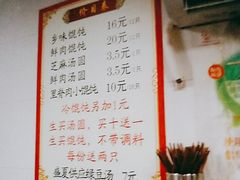 价目表
乡味馄饨 16元
鲜肉馄饨 20元
芝麻汤圆 3.5元
鲜肉汤圆 3.5元
里脊肉小馄饨 10元
冷馄饨另加1元
生买汤圆、买十送一
生买馄饨、不带调料
每份送两只
盛夏供应绿豆汤 7元